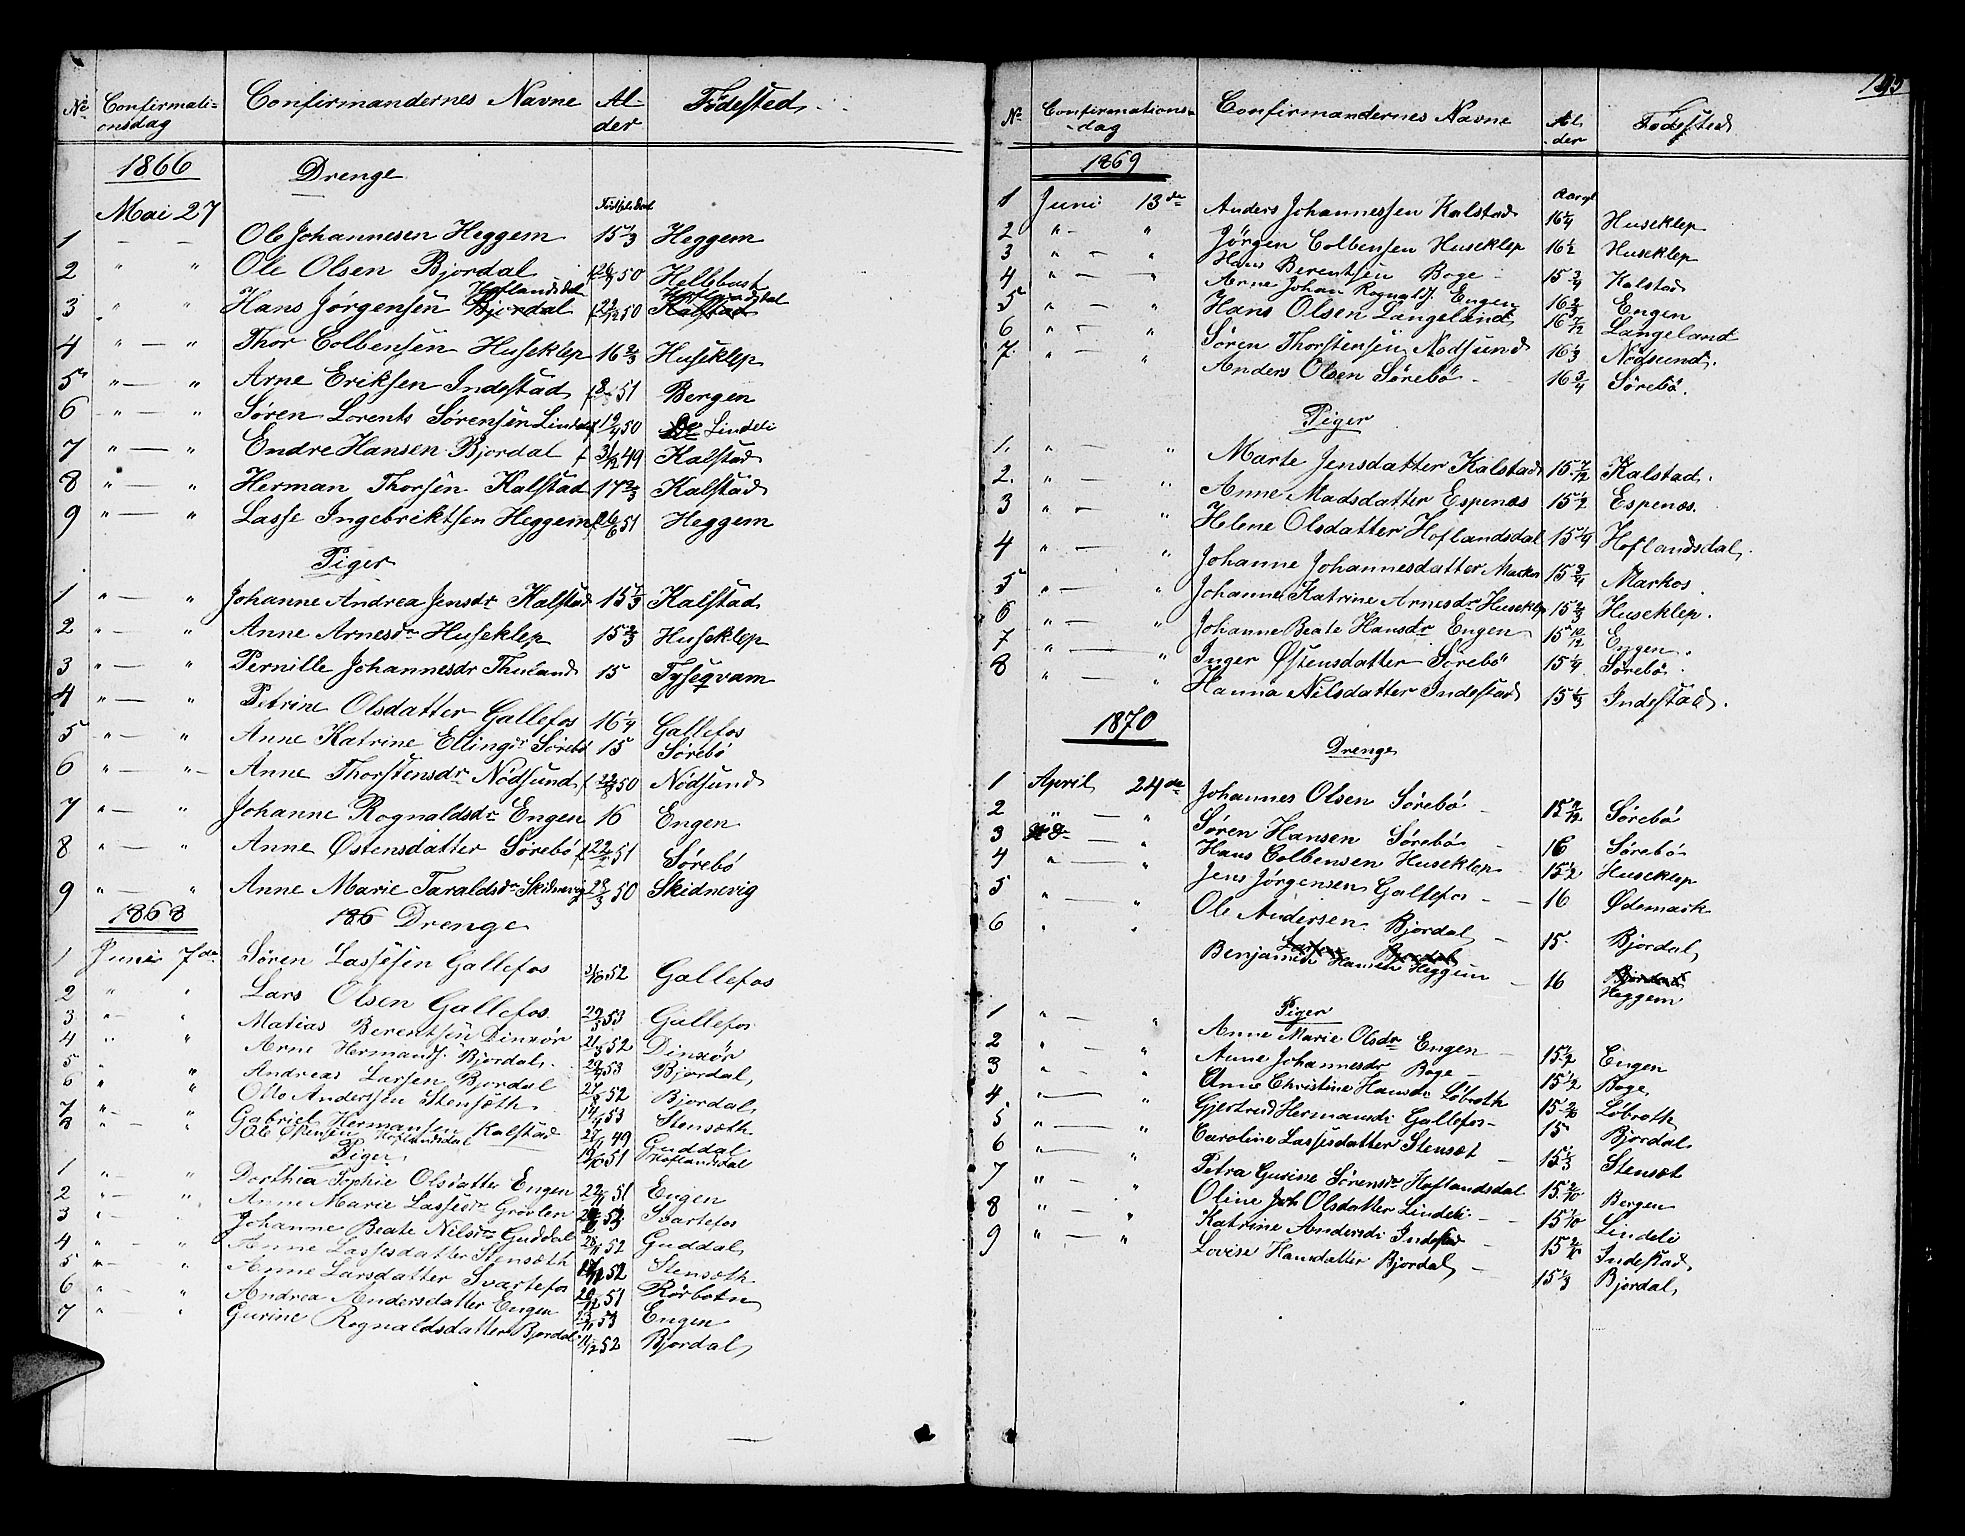 No Confirmationsdag Confirmandernes Navne Alder Födested
1866 Drenge
Mai 27 Födselsdat
1 — — Ole Johannesen Heggem 15 1/3 Heggem
2 " " Ole Olsen Bjordal 50 Hellebust
Hoflandsdal Hoflandsdal
3 " " Hans Jørgensen Bjordal f 22/12 50 Kalstad
4 " — " Thor Colbensen Huseklep 16 2/3 Huseklep
5 " — " Arne Eriksen Indestad 51 Bergen
6 " — " Søren Lorents Sørensen Lindeli 50 Lindeli
7 " — " Endre Hansen Bjordal f 31/12 49 Kalstad
8 " — " Herman Thorsen Kalstad 17 2/3 Kalstad
9 " — " Lasse Ingebriktsen Heggem 26/6 51 Heggem
Piger
1 " — " Johanne Andrea Jensdr Kalstad 15 1/3 Kalstad
2 " — " Anne Arnesdr Huseklep 15 2/3 Huseklep
3 " — " Pernille Johannesdr Thueland 15 Tyseqvam
4 " — " Petrine Olsdatter Gallefos 16 1/4 Gallefos
5 " — " Anne Katrine Ellingsdr Sørebö 15 Sørebö
6 " — " Anne Thorstensdr Nödsund f 22/8 50 Nödsund
7 " — " Johanne Rognaldsdr Engen 16 Engen
8 " — " Anne Østensdatter Sørebö f 22/2 51 Sørebö
9 " — " Anne Marie Taraldsdr Skidnevig 50 Skidnevig
1868 186 Drenge
1 Juni 7de Søren Lassesen Gallefos 31/10 52 Gallefos
2 " " Lars Olsen Gallefos 29/3 53 Gallefos
3 " " Matias Berentsen Dinxör 52 Dinxör
4 " " Arne Hermands. Bjordal 53 Bjordal
5 " " Andreas Larsen Bjordal 52 Bjordal
6 " " Otto Anderssen Stensæth 53 Stensæth
7 " " Gabriel Hermansen Kalstad 49 Guddal
8 " " Ole Hoflandsdal 51 Hoflandsdal
Piger
1 " " Dorthea Sophie Olsdatter Engen 22/11 51 Engen
2 " " Anne Marie Lassesdr Grövlen 52 Svartefos
3 " Johanne Beate Nilsdr Guddal 28/11 52 Guddal
4 " " Anne Lassesdatter Stensæth 52 Stensæth
5 " " Anne Larsdatter Svartefos 51 Rörbotn
6 " " Andrea Andersdatter Engen 53 Engen
7 " " Gurine Rognaldsdatter Bjordal 11/2 52 Bjordal
No Confirmationsdag Confirmandernes Navne Alder Födested
1869
Aargl
1 Juni 13de Anders Johannessen Kalstad 16 1/4 Huseklep
2 " " Jörgen Colbensen Huseklep 16 1/2 Huseklep
3 " — " Hans Berentsen Boge 15 3/4 Kalstad
4 " — " Arne Johan Rognalds. Engen 16 2/3 Engen
5 " — " Hans Olsen Langeland 16 7/12 Langeland
6 " — " Sören Thorstensen Nødsund 16 1/3 Nödsund.
7. " — " Anders Olsen Sörebö 16 3/4 Sörebö.
Piger
1. " — " Marte Jensdatter Kalstad 15 7/12 Kalstad.
2. " — " Anne Madsdatter Espenæs 15 1/2 Espenæs.
3 " — " Helene Olsdatter Hoflandsdal 15 1/4 Hoflandsdal.
4 " — " Johanne Johannesdatter Markos 15 3/4 Markos.
5 " — " Johanne Katrine Arnesdr Huseklep 15 2/3 Huseklep.
6 " — " Johanne Beate Hansdr Engen 15 10/12 Engen.
7 " — " Inger Østensdatter Sörebö 15 1/4 Sörebö.
8 " — " Hanna Nilsdatter Indestad 15 1/3 Indestad.
1870 Drenge
1 April 24de Johannes Olsen Sörebö 15 Sörebö
2 " — " Søren Hansen Sörebö 16 Sörebö
3 " Hans Colbensen Huseklep 15 1/2 Huseklep
4 " — " Jens Jörgensen Gallefos 16 Ødemark
5 " — " Ole Andersen Bjordal 15 Bjordal
6 " " Benjamin Larsen Bjordal Hansen Heggem 16 Bjordal Heggem
Piger
1 " — " Anne Marie Olsdr Engen 15 1/2 Engen
2 " — " Anne Johannesdr Boge 15 1/2 Boge
3 " — " Anne Christine Hansdr Löbroth Löbroth
4 " — " Gjertrud Hermansdr Gallefos 15 Bjordal
5 " — " Caroline Lassesdatter Stensæt 15 1/3 Stensæt
6 " — " Petra Gurine Sörensdr Hoflandsdal 15 2/10 Bergen
7 " — " Oline Joh Olsdatter Lindeli 15 1/10 Lindeli
8 " — " Katrine Andersdr Indestad Indestad
9 " — " Lovise Hansdatter Bjordal 15 1/3 Bjordal